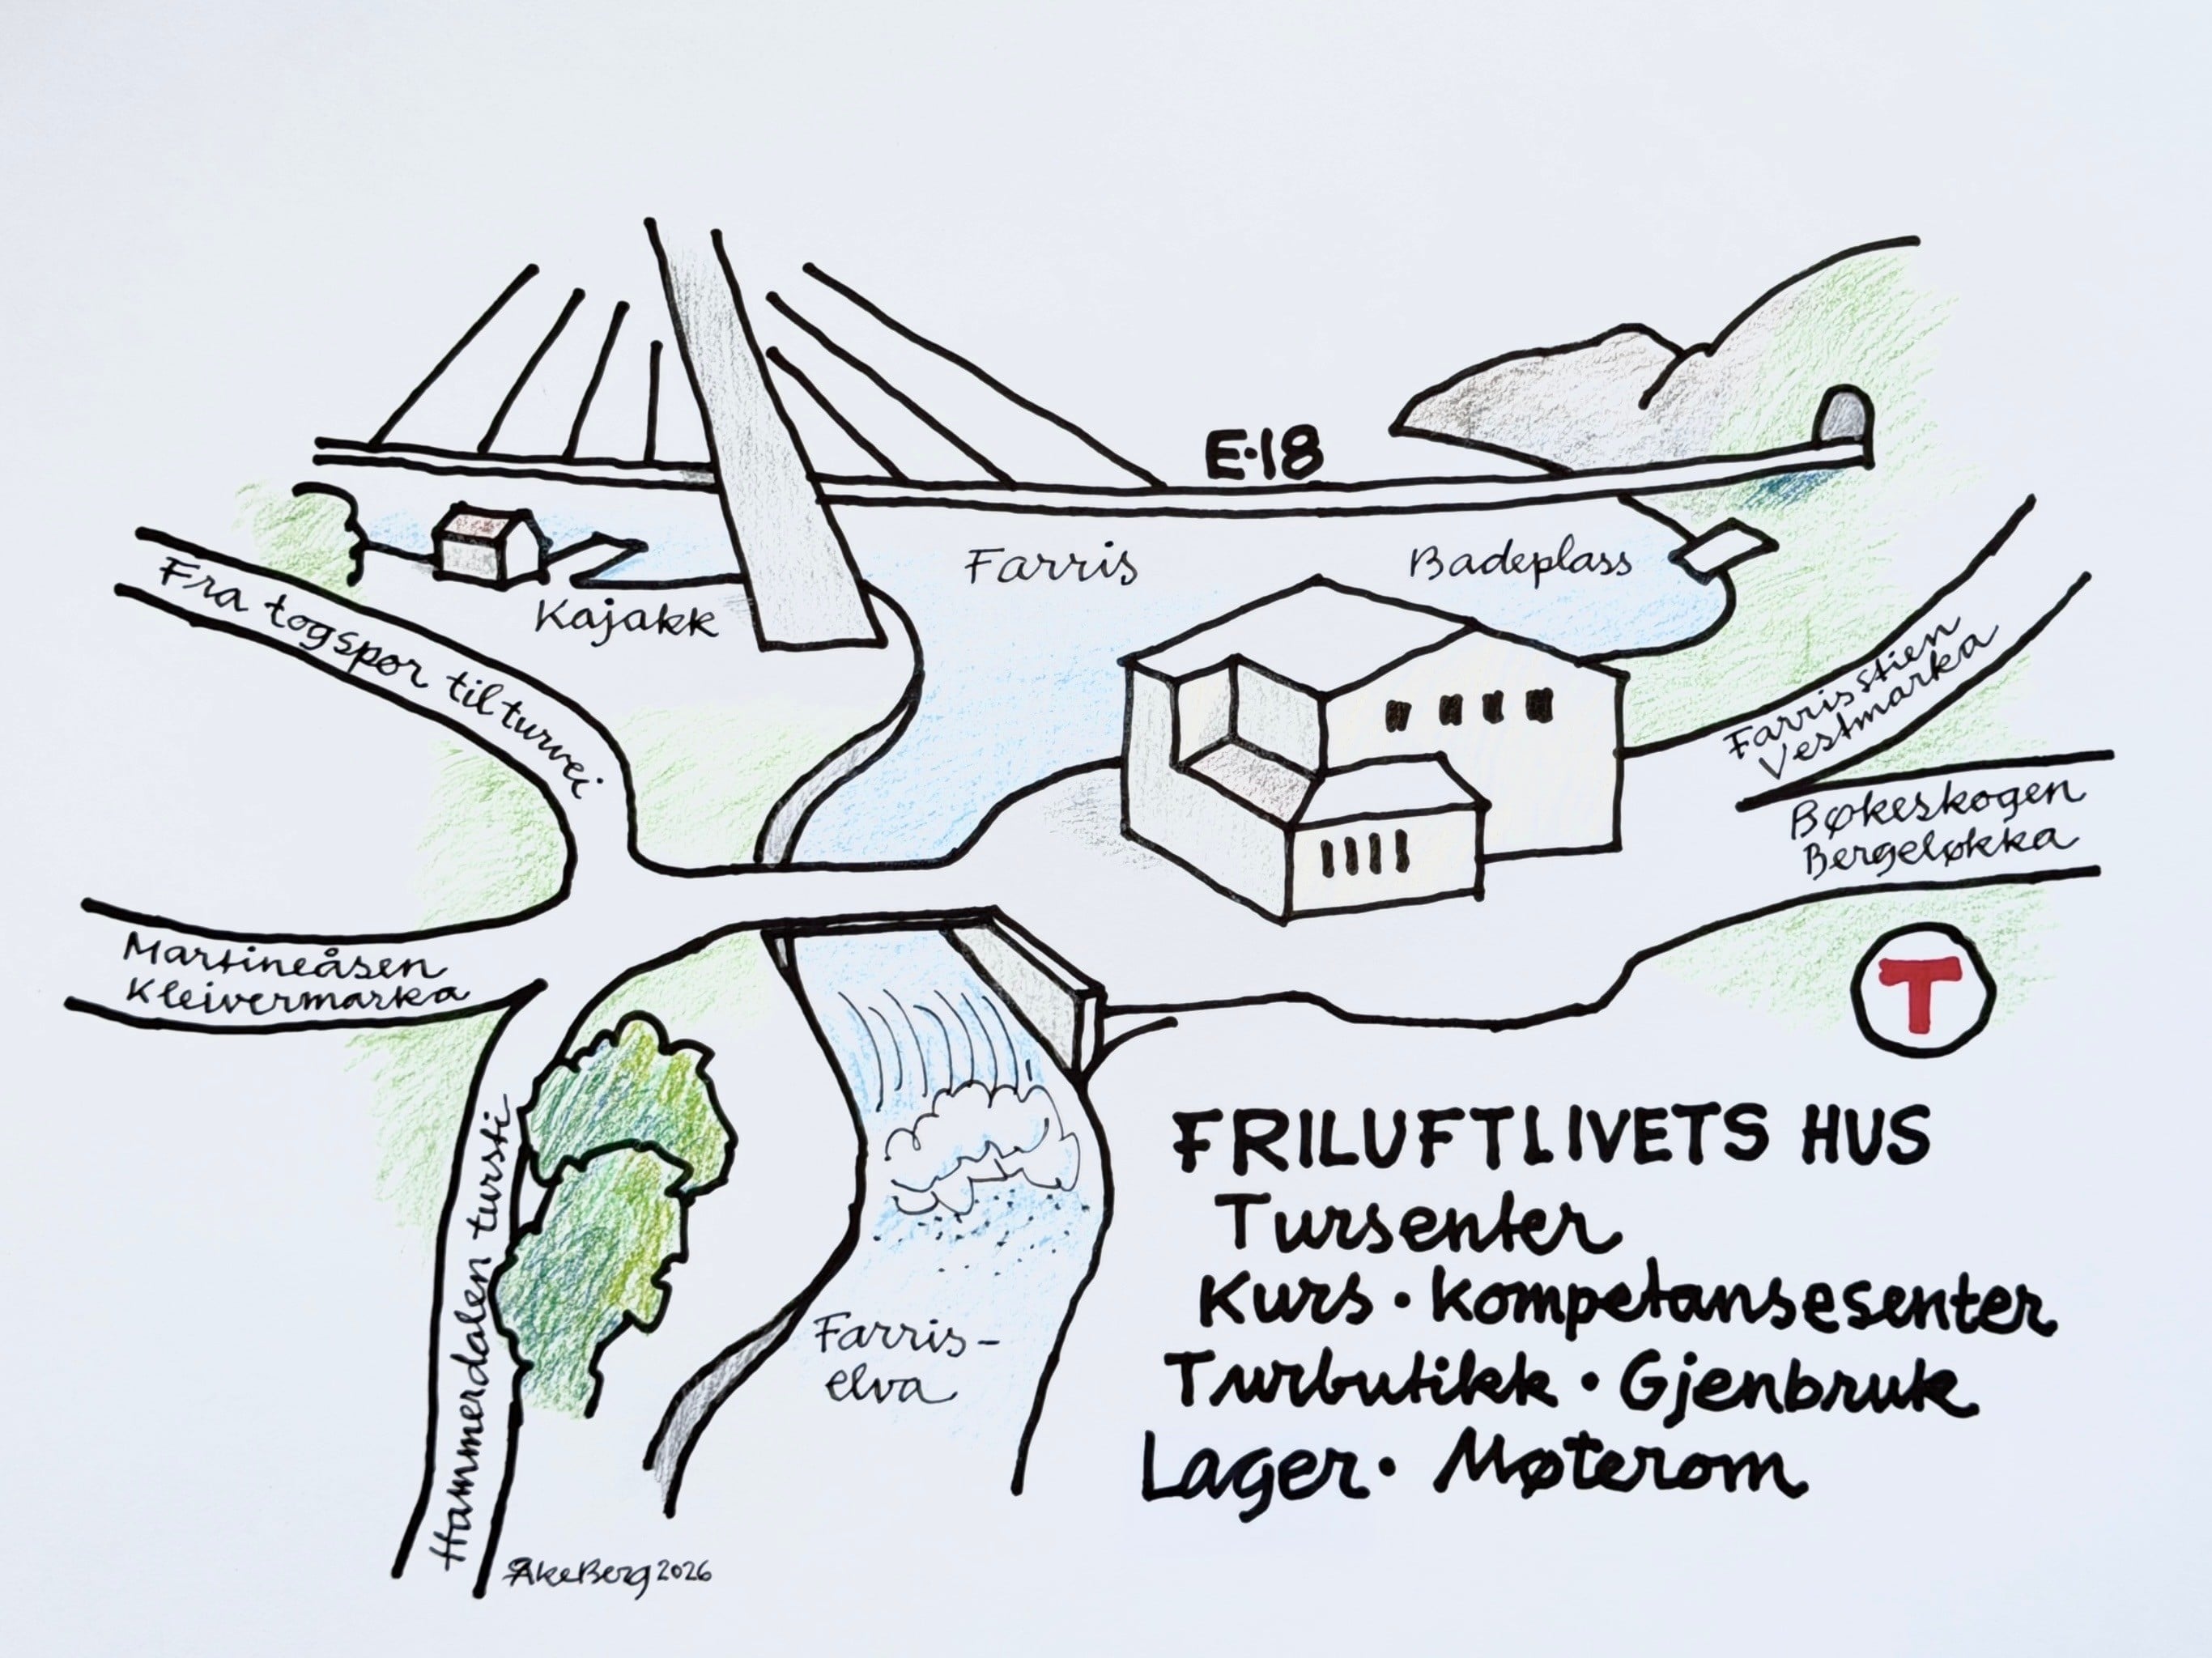 E·18
Farris
Badeplass
Kajakk
Fra togspor til turvei
Farrisstien
Vestmarka
Bøkeskogen
Bergeløkka
Martineåsen
Kleivermarka
T
Hammerdalen tursti
FRILUFTLIVETS HUS
Tursenter
Kurs · Kompetansesenter
Turbutikk · Gjenbruk
Lager · Møterom
Farris-
elva
Åke Berg 2026